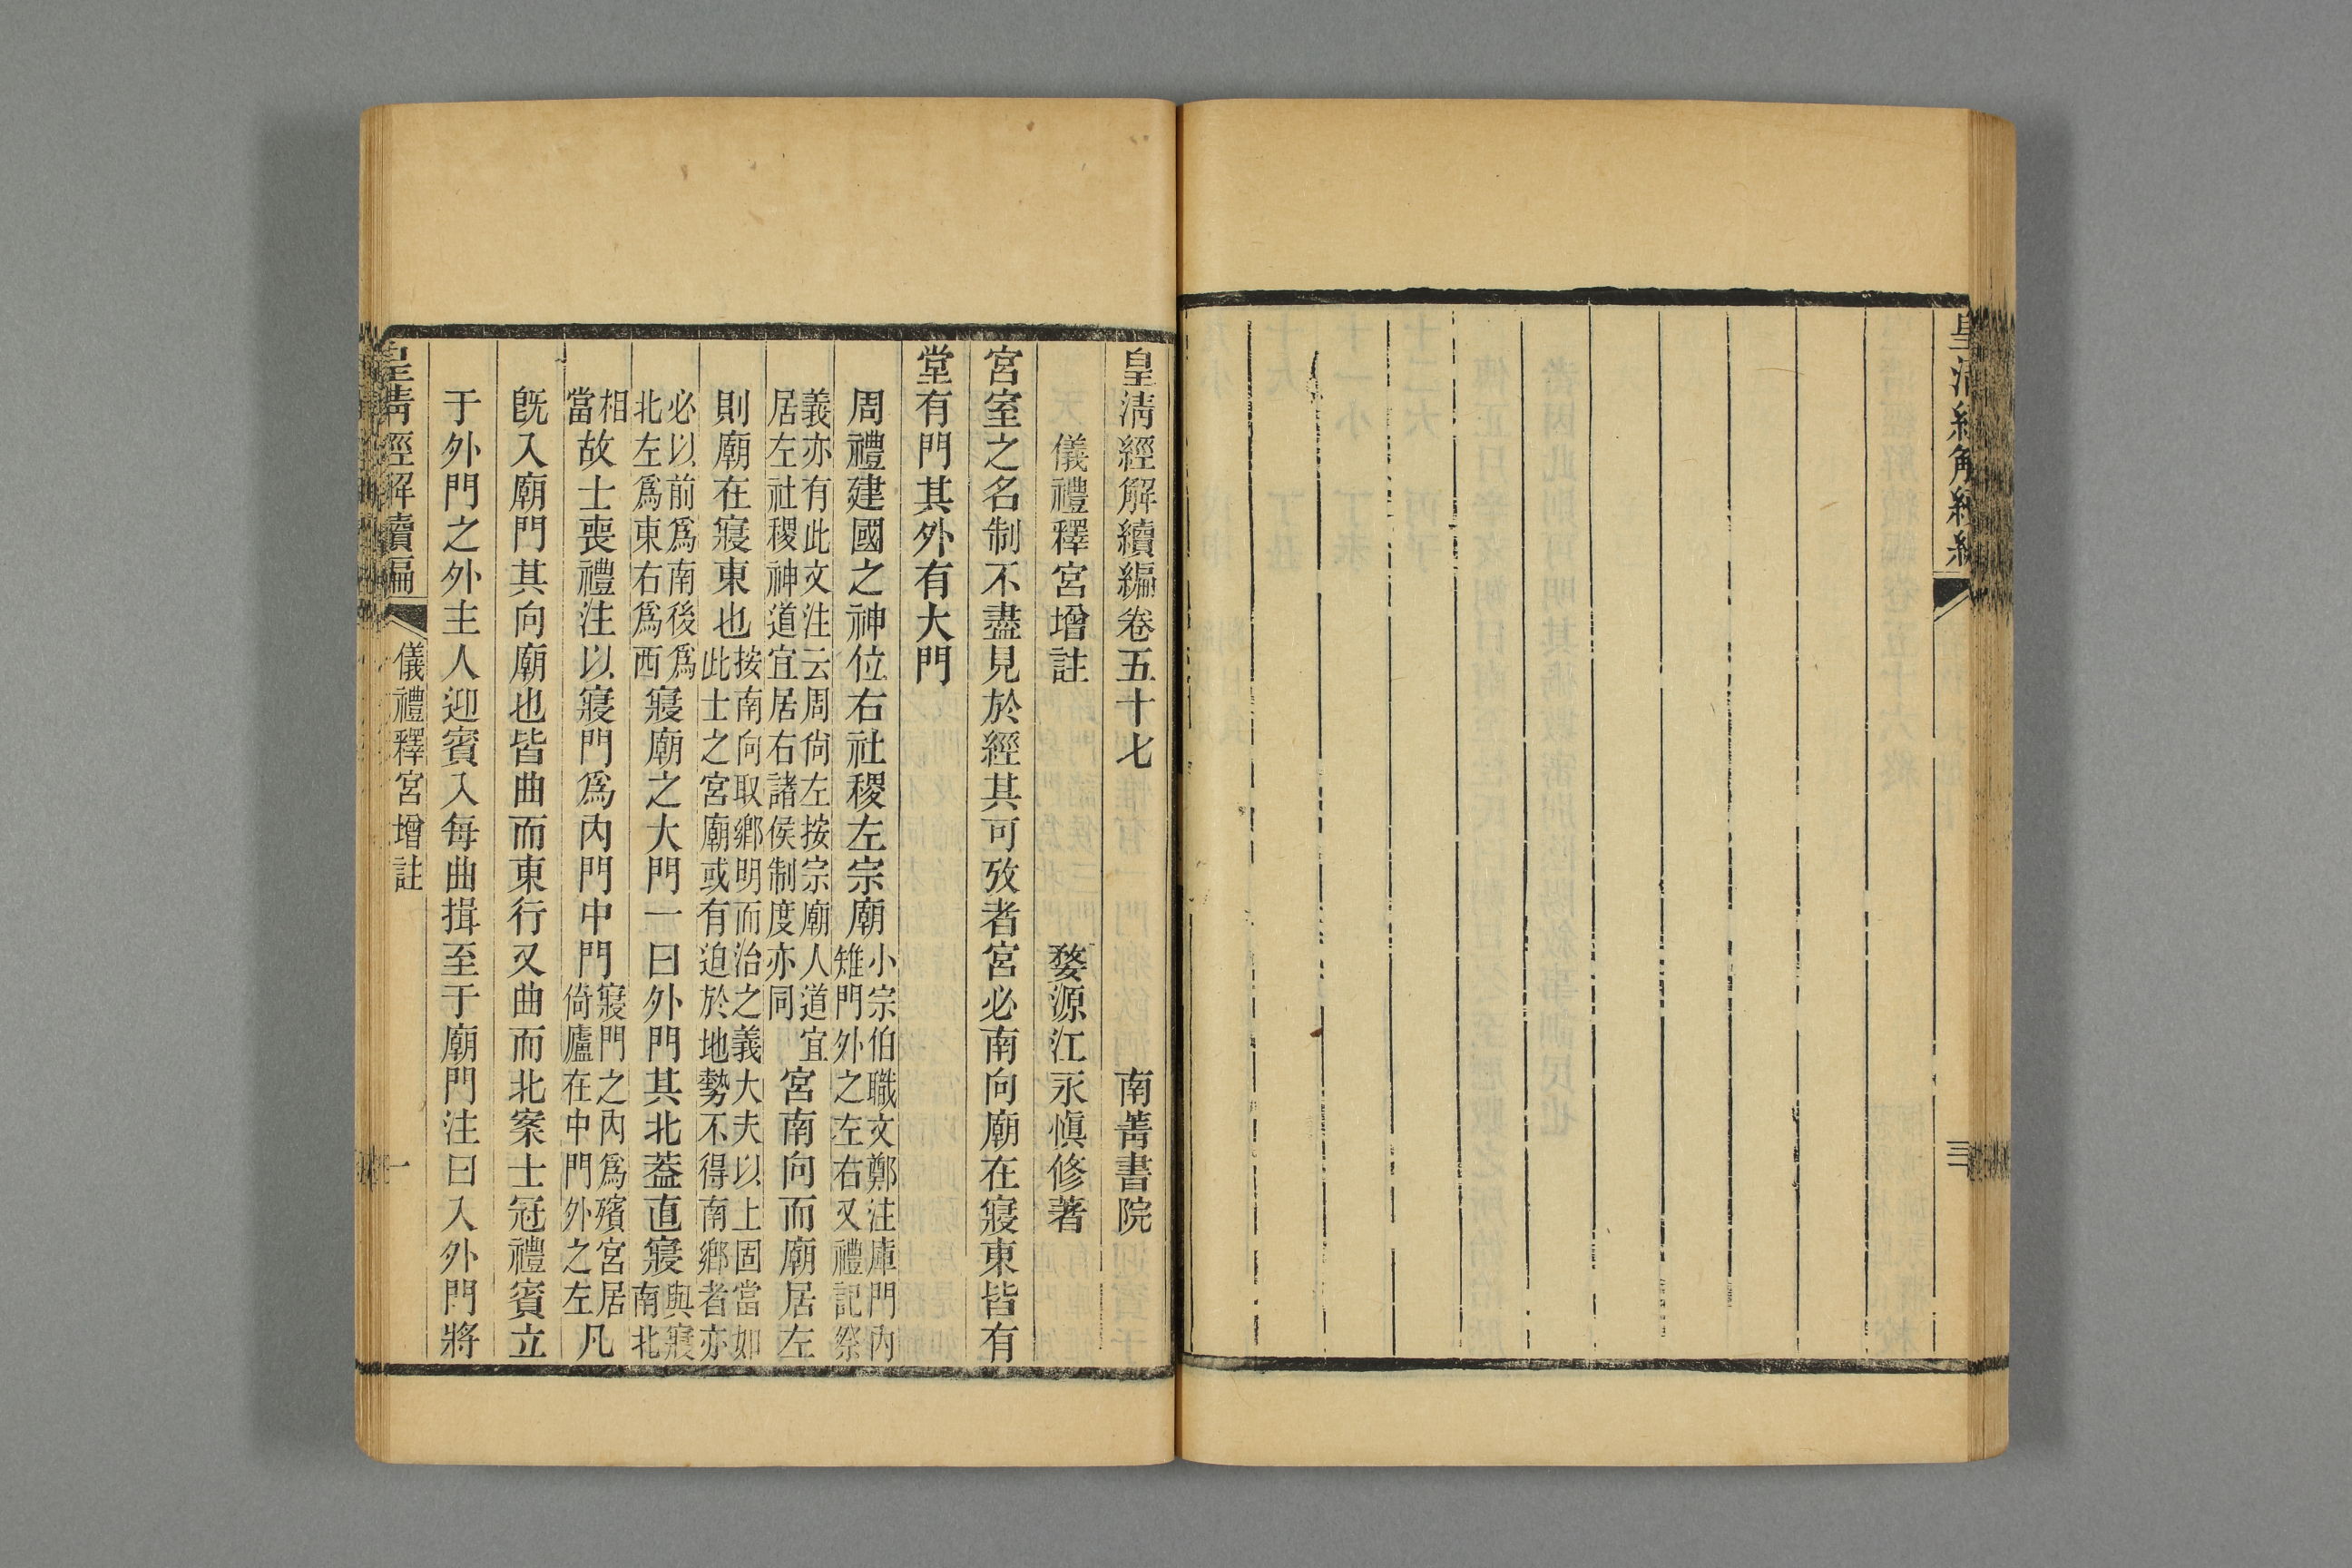 皇清經解續編
三
皇清經解續編卷五十七 南菁書院
儀禮釋宮增註 婺源江永愼修著
宮室之名制不盡見於經其可攷者宮必南向廟在寢東皆有
堂有門其外有大門
周禮建國之神位右社稷左宗廟小宗伯職文鄭注庫門內雉門外之左右又禮記祭
義亦有此文注云周尙左按宗廟人道宜居左社稷神道宜居右諸侯制度亦同宮南向而廟居左
則廟在寢東也按南向取鄕明而治之義大夫以上固當如此士之宮廟或有迫於地勢不得南鄕者亦
必以前爲南後爲北左爲東右爲西寢廟之大門一曰外門其北葢直寢與寢南北
相當故士喪禮注以寢門爲內門中門寢門之內爲殯宮居倚廬在中門外之左凡
旣入廟門其向廟也皆曲而東行又曲而北案士冠禮賓立
于外門之外主人迎賓入每曲揖至于廟門注曰入外門將
皇清經解續編 儀禮釋宮增註 一